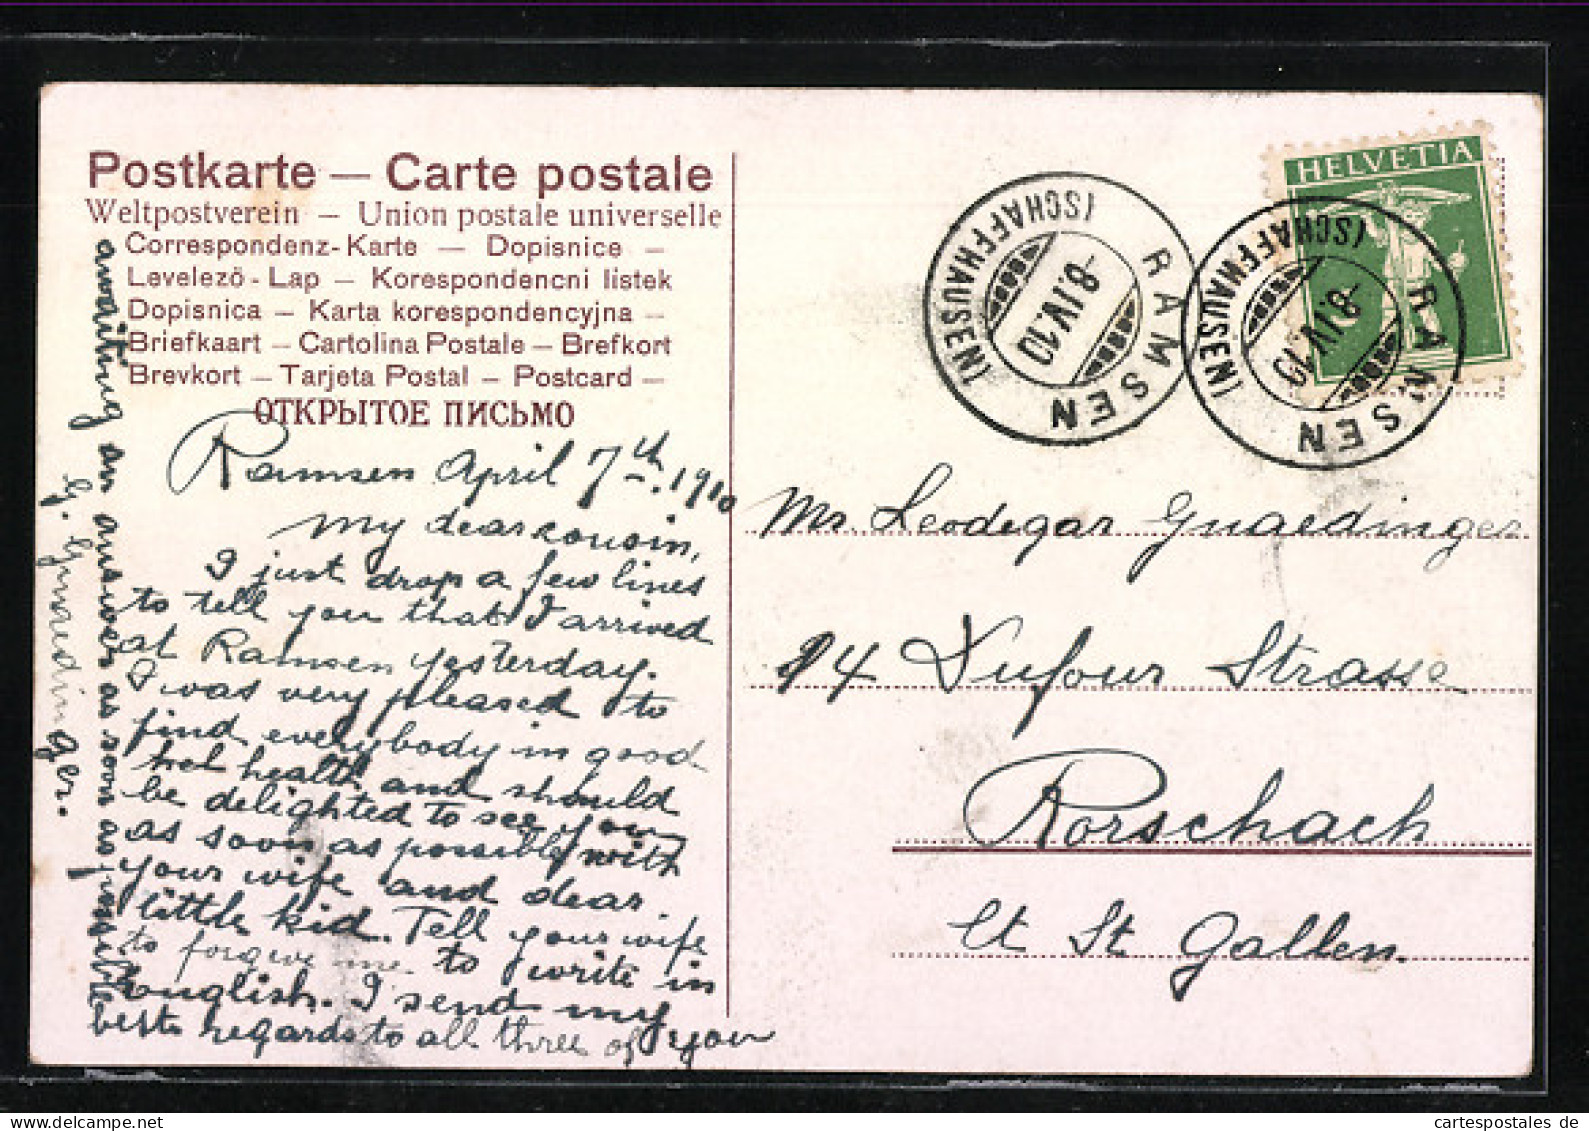 Postkarte — Carte postale
Weltpostverein — Union postale universelle
Correspondenz-Karte — Dopisnice —
Levelező-Lap — Korespondencni listek
Dopisnica — Karta korespondencyjna —
Briefkaart — Cartolina Postale — Brefkort
Brevkort — Tarjeta Postal — Postcard —
ОТКРЫТОЕ ПИСЬМО
Ramsen April 7th. 1910
My dear cousin,
I just drop a few lines
to tell you that I arrived
at Ramsen yesterday.
I was very pleased to
find everybody in good
health and should
be delighted to see you
as soon as possible with
your wife and dear
little kid. Tell your wife
to forgive me to write in
english. I send my
best regards to all three of you
awaiting an answer as soon as possible
Gnaedinger.
HELVETIA
5
RAMSEN
(SCHAFFHAUSEN)
-8.IV.10
RAMSEN
(SCHAFFHAUSEN)
-8.IV.10
Mr Leodegar Gnaedinger
94 Dufour Strasse
Rorschach
Ct St Gallen.
cartespostales de